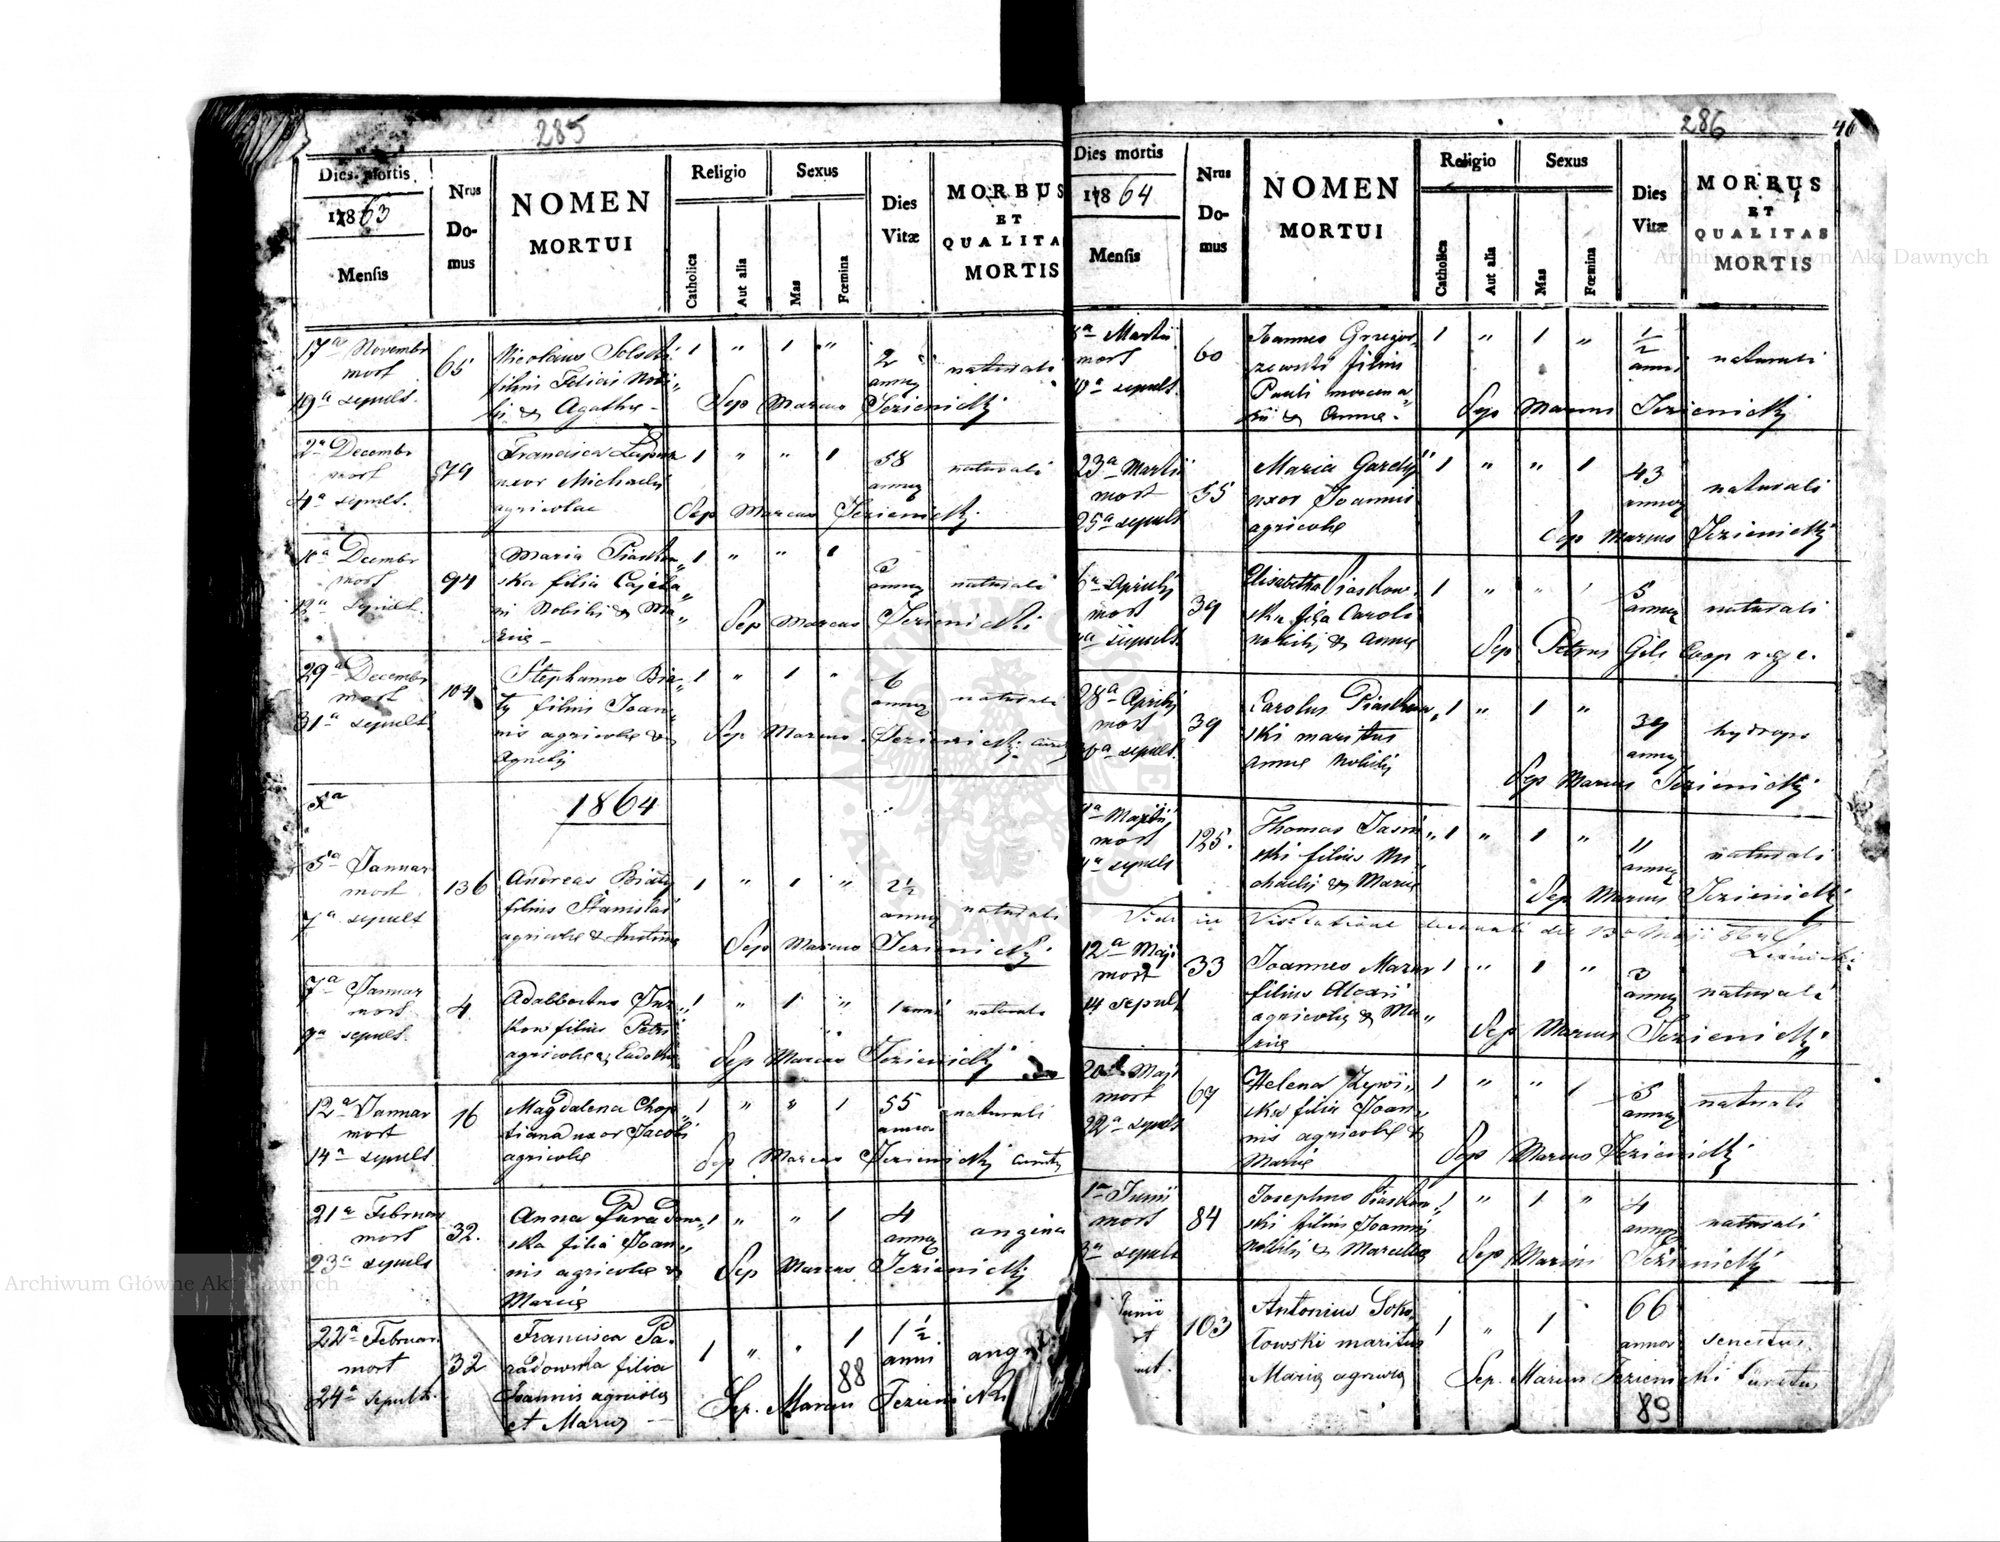 285
Dies mortis
1863
Mensis
Nrus
Do-
mus
NOMEN
MORTUI
Religio
Catholica
Aut alia
Sexus
Mas
Fœmina
Dies
Vitæ
MORBUS
ET
QUALITA
MORTIS
17a Novembr
mort
19a sepult.
65
Nicolaus Solski
filius Felicis Nobi„
& Agatha
1 „ 1 „
2
annor
naturali
Sep Marcus Jezienicki
2a Decembr
mort
4a sepult.
79
Francisca
uxor Michaelis
agricolae
1 „ „ 1
58
annor
naturali
Sep Marcus Jezienicki
Decembr
mort
12a sepult.
94
Maria Piasko„
ska filia Cajeta„
ni Nobilis & Ma„
riae
1 „ „ 1
annor
naturali
Sep Marcus Jezienicki
29a Decembr
mort
31a sepult.
104
Stephanus Bia„
ły filius Joan„
nis agricolae &
Agnetis
1 „ 1 „
6
annor
naturali
Sep Marcus Jezienicki
1864
5a Januar
mort
7a sepult
136
Andreas Biały
filius Stanislai
agricolae & Justinae
1 „ 1 „
2½
annor
naturali
Sep Marcus Jezienicki
7a Januar
mort
9a sepult.
4
Adalbertus
kow filius Petri
agricolae &
1 „ 1 „
1 anni
naturali
Sep Marcus Jezienicki
12a Januar
mort
14a sepult.
16
Magdalena Chop„
tiana uxor Jacobi
agricolae
1 „ „ 1
55
annor
naturali
Sep Marcus Jezienicki
21a Februar
mort
23a sepult
32.
Anna Paradow„
ska filia Joan„
nis agricolae &
Mariae
1 „ „ 1
4
annor
angina
Sep Marcus Jezienicki
22a Februar
mort
24a sepult.
32
Francisca Pa„
radowska filia
Joannis agricolae
et Mariae
1 „ „ 1
1½
anni
Sep. Marcus Jezienicki
88
286
46
Dies mortis
1864
Mensis
Nrus
Do-
mus
NOMEN
MORTUI
Religio
Catholica
Aut alia
Sexus
Mas
Fœmina
Dies
Vitæ
MORBUS
ET
QUALITAS
MORTIS
8a Martii
mort
10a sepult.
60
Joannes Grzegor„
zewski filius
Pauli mercena„
rii & Annae
1 „ 1 „
½
anni
naturali
Sep Marcus Jezienicki
23a Martii
mort
25a sepult
55
Maria Gardy
uxor Joannis
agricolae
1 „ „ 1
43
annor
naturali
Sep Marcus Jezienicki
6a Aprilis
mort
sepult.
39
Elisabetha Piaskow„
ska filia Caroli
nobilis & Annae
1 „ „ 1
5
annor
naturali
Sep Petrus Gile Coop r.g.c.
28a Aprilis
mort
sepult.
39
Carolus Piaskow„
ski maritus
Annae Nobilis
1 „ 1 „
39
annor
hydrops
Sep Marcus Jezienicki
Maji
mort
sepult
125.
Thomas Jasin„
ski filius Mi„
chaelis & Mariae
1 „ 1 „
11
annor
naturali
Sep Marcus Jezienicki
Vidi in Visitatione decanali die 13a Maji 864
12a Maji
mort
14 sepult
33
Joannes Mazur
filius Alexii
agricolae & Ma„
riae
1 „ 1 „
3
annor
naturali
Sep Marcus Jezienicki
20a Maji
mort
22a sepult
67
Helena Zywi„
ska filia Joan„
nis agricolae &
Mariae
1 „ „ 1
5
annor
naturali
Sep Marcus Jezienicki
1a Junii
mort
3a sepult
84
Josephus Piaskow„
ski filius Joannis
Nobilis & Marcellae
1 „ 1 „
4
annor
naturali
Sep Marcus Jezienicki
Junii
103
Antonius Soko„
łowski maritus
Mariae agricola
1 „ 1
66
annor
senectus
Sep. Marcus Jezienicki Curatus
89
Archiwum Główne Akt Dawnych
Archiwum Główne Akt Dawnych